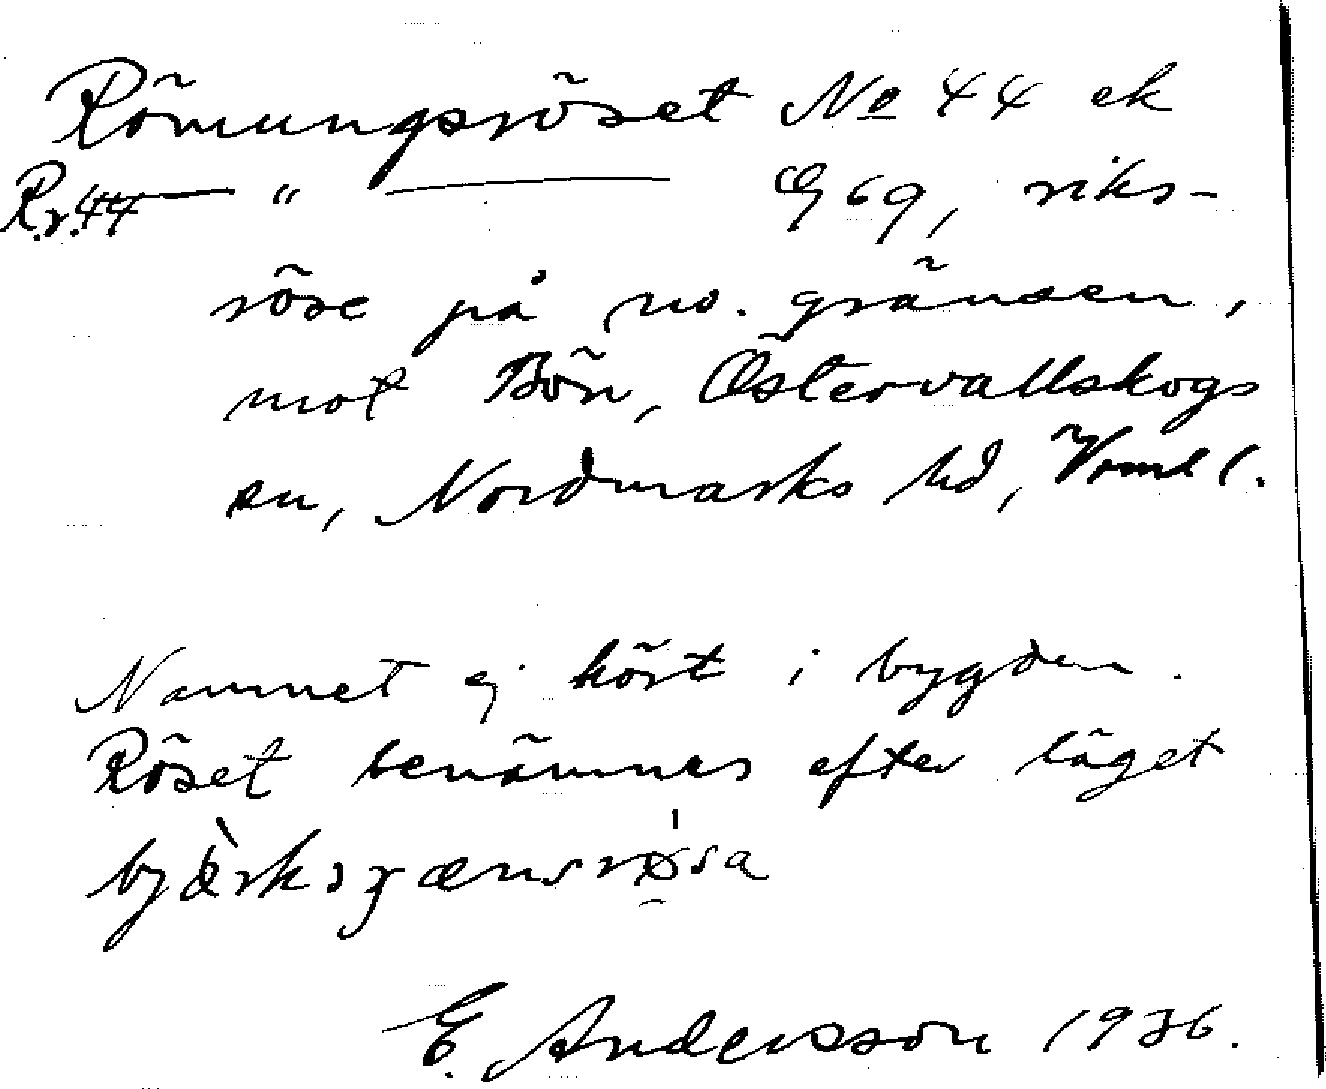 Römungsröset No 44 ek
R.r.44 — " — G 69, riks-
röse på no. gränsen,
mot Bön, Östervallskogs
sn, Nordmarks hd, Vrml.
Namnet ej hört i bygden.
Röset benämnes efter läget
E. Andersson 1936.